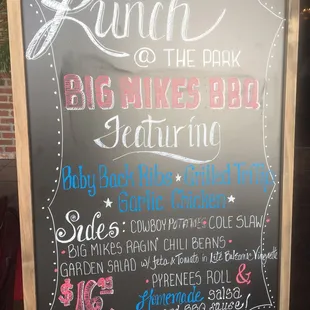 Lunch
@ THE PARK
BIG MIKES BBQ
Featuring
Baby Back Ribs ★ Grilled Tri Tip
★ Garlic Chicken ★
Sides: COWBOY POTATOES · COLE SLAW
· BIG MIKES RAGIN' CHILI BEANS ·
GARDEN SALAD w/ feta & Tomato in Lite Balsamic Vinaigrette
· PYRENEES ROLL &
$16
Homemade salsa
BBQ sauce!